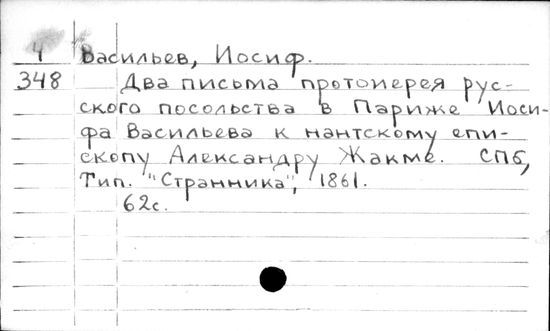 4 Васильев, Иосиф.
348 Два письма протоиерея рус-
ского посольства в Париже Иоси-
фа Васильева к нантскому епи-
скопу Александру Жакме. СПб,
Тип. "Странника", 1861.
62с.